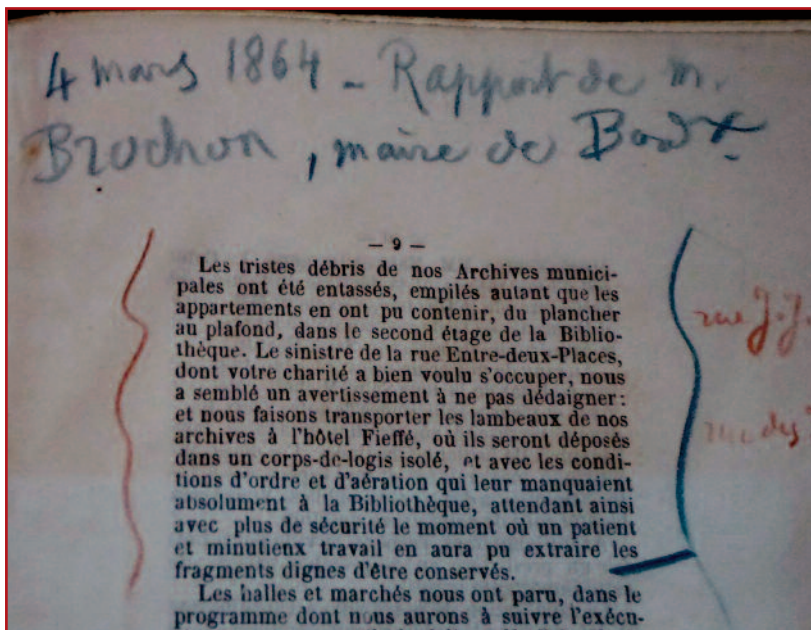 4 mars 1864 – Rapport de M.
Brochon, maire de Bordx.
— 9 —
Les tristes débris de nos Archives munici-
pales ont été entassés, empilés autant que les
appartements en ont pu contenir, du plancher
au plafond, dans le second étage de la Biblio-
thèque. Le sinistre de la rue Entre-deux-Places,
dont votre charité a bien voulu s'occuper, nous
a semblé un avertissement à ne pas dédaigner:
et nous faisons transporter les lambeaux de nos
archives à l'hôtel Fieffé, où ils seront déposés
dans un corps-de-logis isolé, et avec les condi-
tions d'ordre et d'aération qui leur manquaient
absolument à la Bibliothèque, attendant ainsi
avec plus de sécurité le moment où un patient
et minutienx travail en aura pu extraire les
fragments dignes d'être conservés.
Les halles et marchés nous ont paru, dans le
programme dont nous aurons à suivre l'exécu-
rue J.J.
rue des